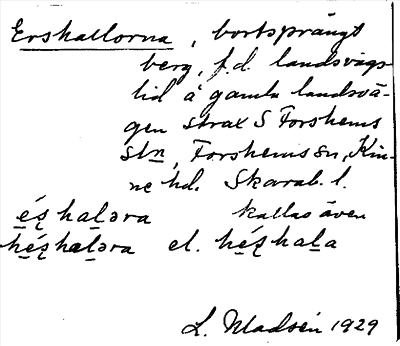 Erskallorna, bortsprängt
berg, f.d. landsvägs-
lid å gamla landsvä-
gen strax S Forshems
stn, Forshems sn, Kin-
ne hd. Skarab. l.
kallas även
el.
L. Madsén 1929